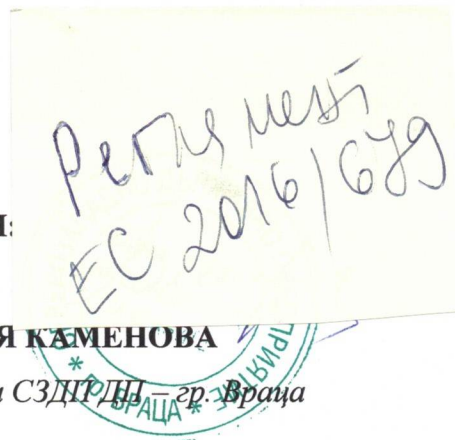 Регламент
ЕС 2016/679
Я КАМЕНОВА
СЗДП ДП – гр. Враца
ВРАЦА *